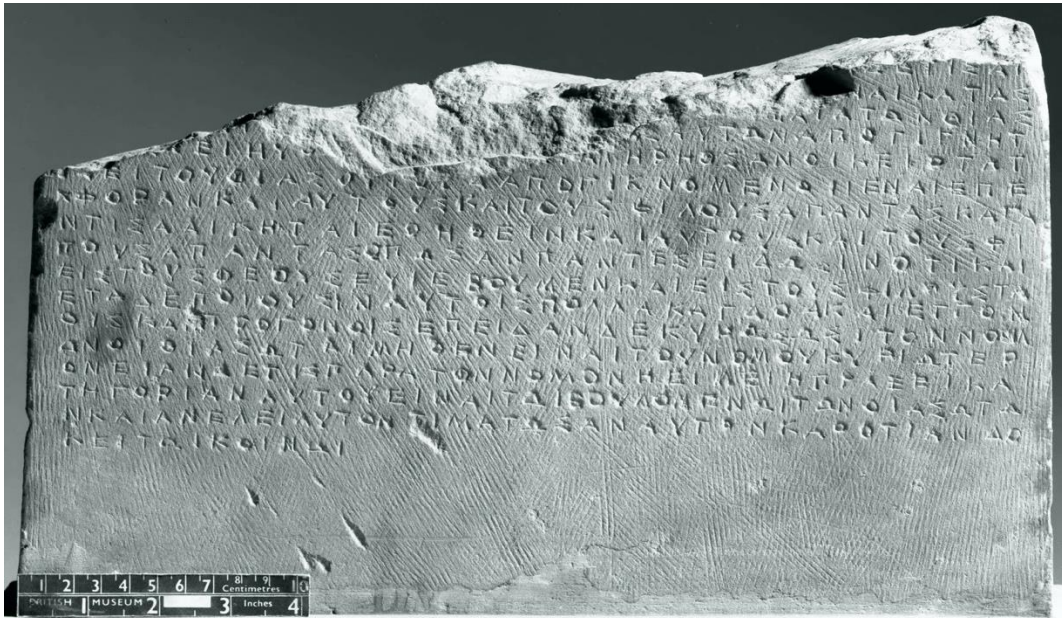 ΑΙΚΑΤΑΣ
ΑΤΩΝΘΙΑΣ
ΑΥΤΩΝΑΠΟΓΙΓΝΗΤ
ΗΡΗΟΣΑΝΟΙΚΕΙΟΤΑΤ
ΕΙΤΟΥΘΙΑΣΟΥΤΟΥΔΑΠΟΓΙΓΝΟΜΕΝΟΥΙΕΝΑΙΕΠΕ
ΧΦΟΡΑΝΚΑΙΑΥΤΟΥΣΚΑΙΤΟΥΣΦΙΛΟΥΣΑΠΑΝΤΑΣΚΑΙΑ
ΝΤΙΣΑΔΙΚΗΤΑΙΒΟΗΘΕΙΝΚΑΙΑΥΤΟΥΣΚΑΙΤΟΥΣΦΙ
ΛΟΥΣΑΠΑΝΤΑΣΟΠΩΣΑΝΠΑΝΤΕΣΕΙΔΩΣΙΝΟΤΙΚΑΙ
ΕΙΣΤΟΥΣΘΕΟΥΣΕΥΣΕΒΟΥΜΕΝΚΑΙΕΙΣΤΟΥΣΦΙΛΟΥΣΤΑ
ΥΤΑΔΕΠΟΙΟΥΣΙΝΑΥΤΟΙΣΠΟΛΛΑΚΑΓΑΘΑΚΑΙΕΓΓΟΝ
ΟΙΣΚΑΙΠΡΟΓΟΝΟΙΣΕΠΕΙΔΑΝΔΕΚΥΡΩΣΩΣΙΤΟΝΝΟΜ
ΟΝΟΙΘΙΑΣΩΤΑΙΜΗΘΕΝΕΙΝΑΙΤΟΥΝΟΜΟΥΚΥΡΙΩΤΕΡ
ΟΝΕΑΝΔΕΤΙΣΠΑΡΑΤΟΝΝΟΜΟΝΗΕΙΠΕΙΗΠΡΑΞΕΙΚΑ
ΤΗΓΟΡΙΑΝΑΥΤΟΥΕΙΝΑΙΤΩΙΒΟΥΛΟΜΕΝΩΙΤΩΝΘΙΑΣΩΤΩ
ΝΚΑΙΑΝΕΛΕΙΑΥΤΟΝΤΙΜΑΤΩΣΑΝΑΥΤΟΝΚΑΘΟΤΙΑΝΔΟ
ΚΕΙΤΩΙΚΟΙΝΩΙ
1 2 3 4 5 6 7 8 9 10 Centimetres
BRITISH 1 MUSEUM 2 3 Inches 4